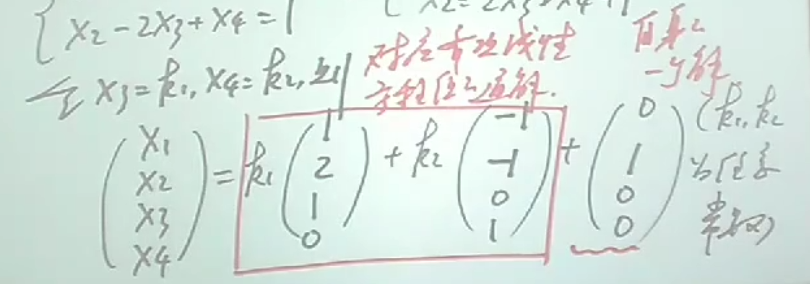 x2-2x3+x4=1
x2=2x3-x4+1
令x3=k1,x4=k2,则
对应齐次线性
方程组的通解.
自身的
一个解
(x1 x2 x3 x4)=k1(1 2 1 0)+k2(-1 -1 0 1)+(0 1 0 0)(k1,k2
为任意
常数)